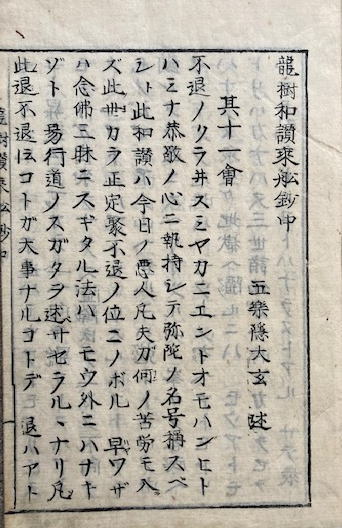 龍樹和讃乘舩鈔中
五樂隱大玄 述
其十一會
不退ノクラ井スミヤカニエントオモハンヒト
ハミナ恭敬ノ心ニ執持シテ弥陀ノ名号稱スベ
シト此和讃ハ今日ノ悪人凡夫ガ何ノ苦労モ入
ズ此世カラ正定聚不退ノ位ニノボル早ワザ
ハ念佛三昧ニスギタル法ハモウ外ニハナヒ
ゾト易行道ノスガタヲ述サセラルヽナリ凡
此退不退ト云コトガ大事ナルコトデ 退ハアト